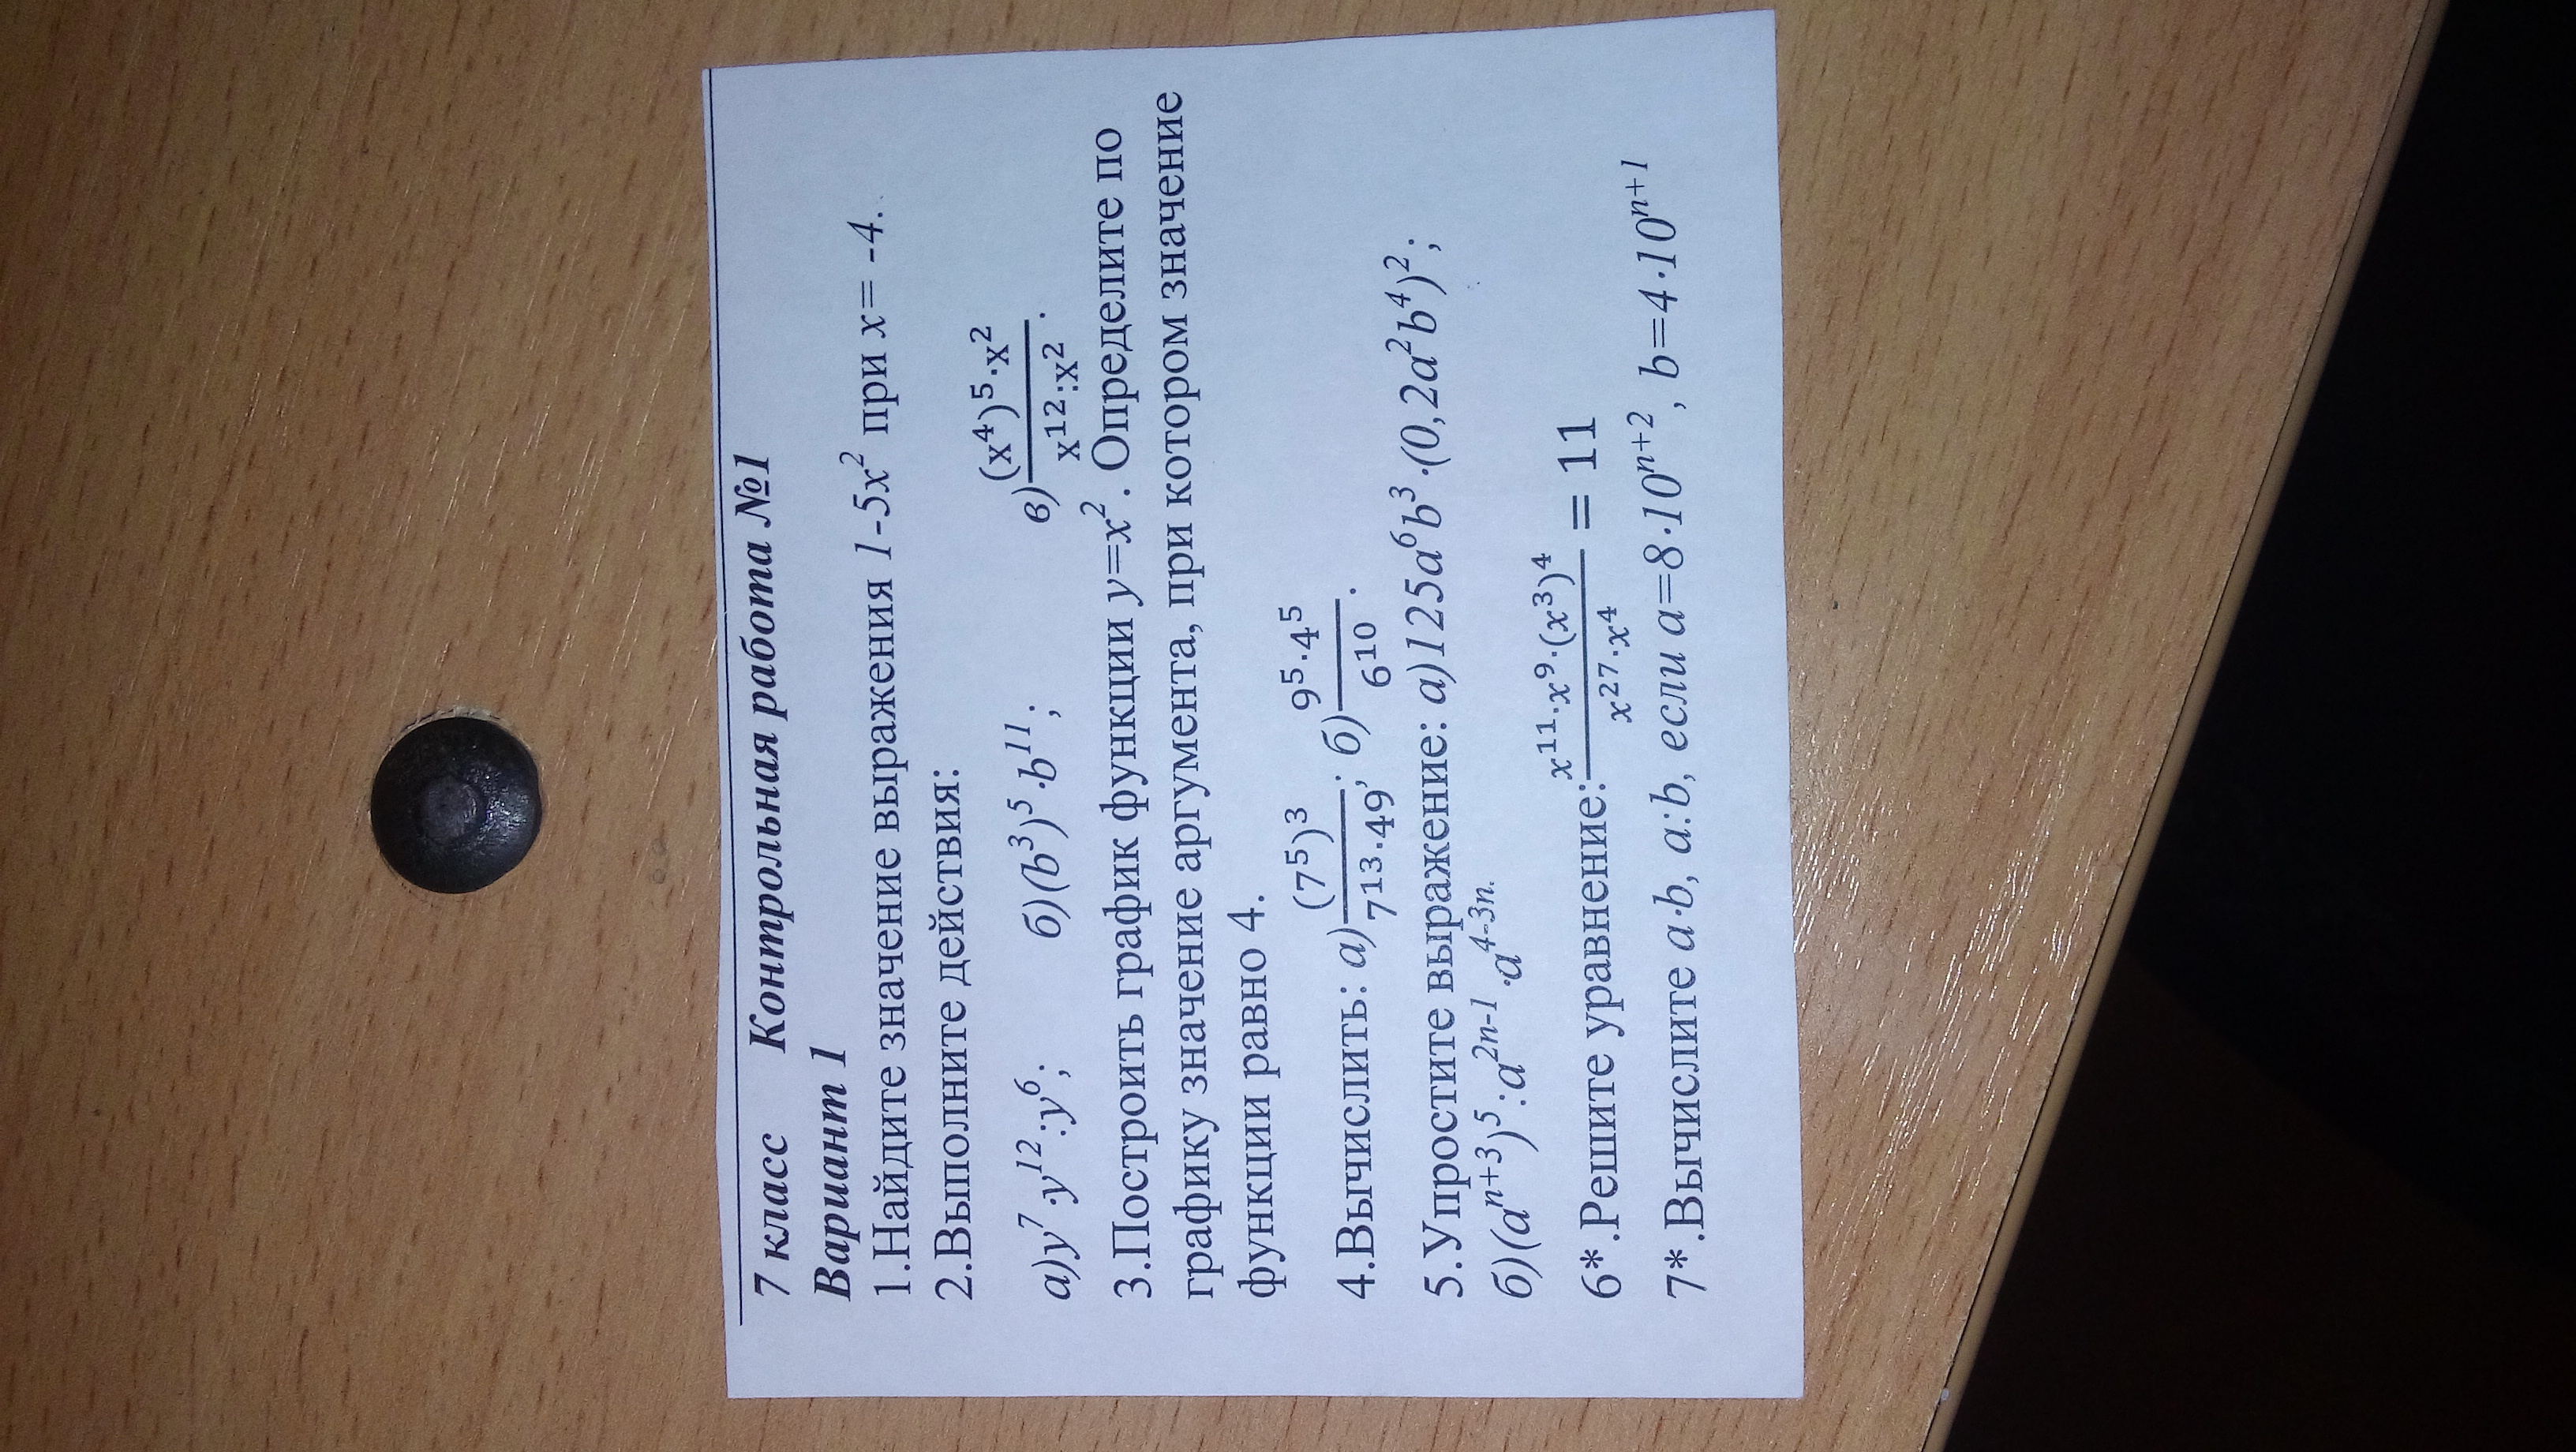 7 класс Контрольная работа №1
Вариант 1
1.Найдите значение выражения 1-5x² при x= -4.
2.Выполните действия:
а)y⁷·y¹²:y⁶; б)(b³)⁵·b¹¹; в)(x⁴)⁵·x²/x¹²:x².
3.Построить график функции y=x². Определите по
графику значение аргумента, при котором значение
функции равно 4.
4.Вычислить: а)(7⁵)³/7¹³·49; б)9⁵·4⁵/6¹⁰.
5.Упростите выражение: а)125a⁶b³·(0,2a²b⁴)²;
б)(aⁿ⁺³)⁵:a²ⁿ⁻¹·a⁴⁻³ⁿ.
6*.Решите уравнение:x¹¹·x⁹·(x³)⁴/x²⁷·x⁴ = 11
7*.Вычислите a·b, a:b, если a=8·10ⁿ⁺², b=4·10ⁿ⁺¹